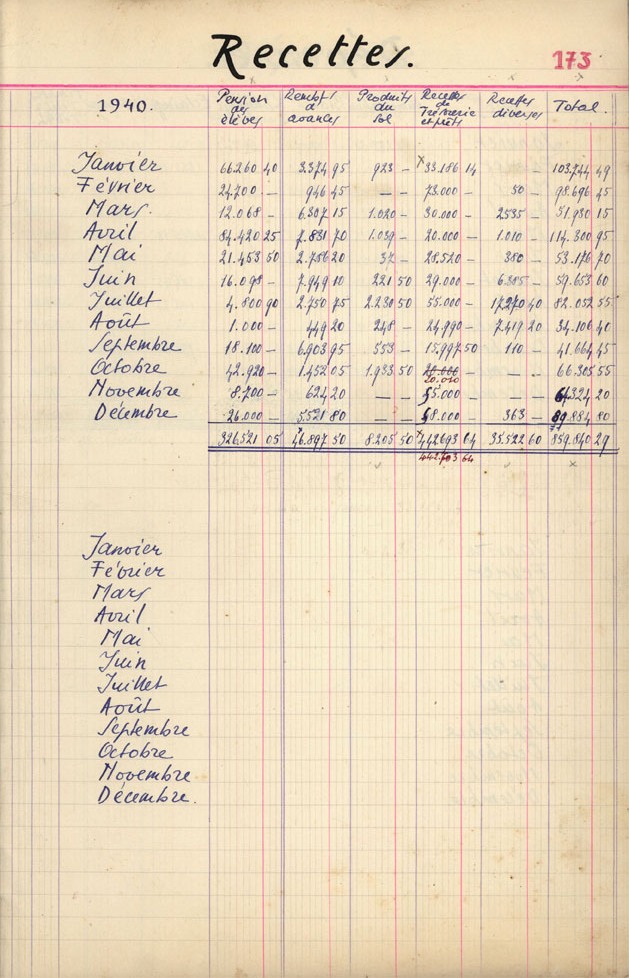 Recettes. 173
1940. Pension des élèves Rembts d'avances Produits du Sol Recettes de Trésorerie et prêts Recettes diverses Total.
Janvier 66260 40 3.374 95 923 — x 33.186 14 103.744 49
Février 24.700 — 946 45 — — 73.000 — 50 — 98.696 45
Mars. 12.068 — 6.307 15 1.020 — 30.000 — 2535 — 51.930 15
Avril 84.420 25 7.831 70 1.039 — 20.000 — 1.010 — 114.300 95
Mai 21.453 50 2.786 20 37 — 28.520 — 380 — 53.176 70
Juin 16.098 — 7.949 10 221 50 29.000 — 6.385 — 59.653 60
Juillet 4.800 90 2.750 75 2.230 50 55.000 — 17.270 40 82.052 55
Août 1.000 — 449 20 248 — 24.990 — 7.419 20 34.106 40
Septembre 18.100 — 6.903 95 553 — 15.997 50 110 — 41.664 45
Octobre 42.920 — 1.452 05 1.933 50 20.000 — — 66.305 55
20.010
Novembre 8.700 — 624 20 — — 55.000 — — — 64324 20
Décembre 26.000 — 5.521 80 — — 58.000 — 363 — 89.884 80
326.521 05 46.897 50 8.205 50 x 442693 64 35.522 60 859.840 29
442.703 64 x
Janvier
Février
Mars
Avril
Mai
Juin
Juillet
Août
Septembre
Octobre
Novembre
Décembre.